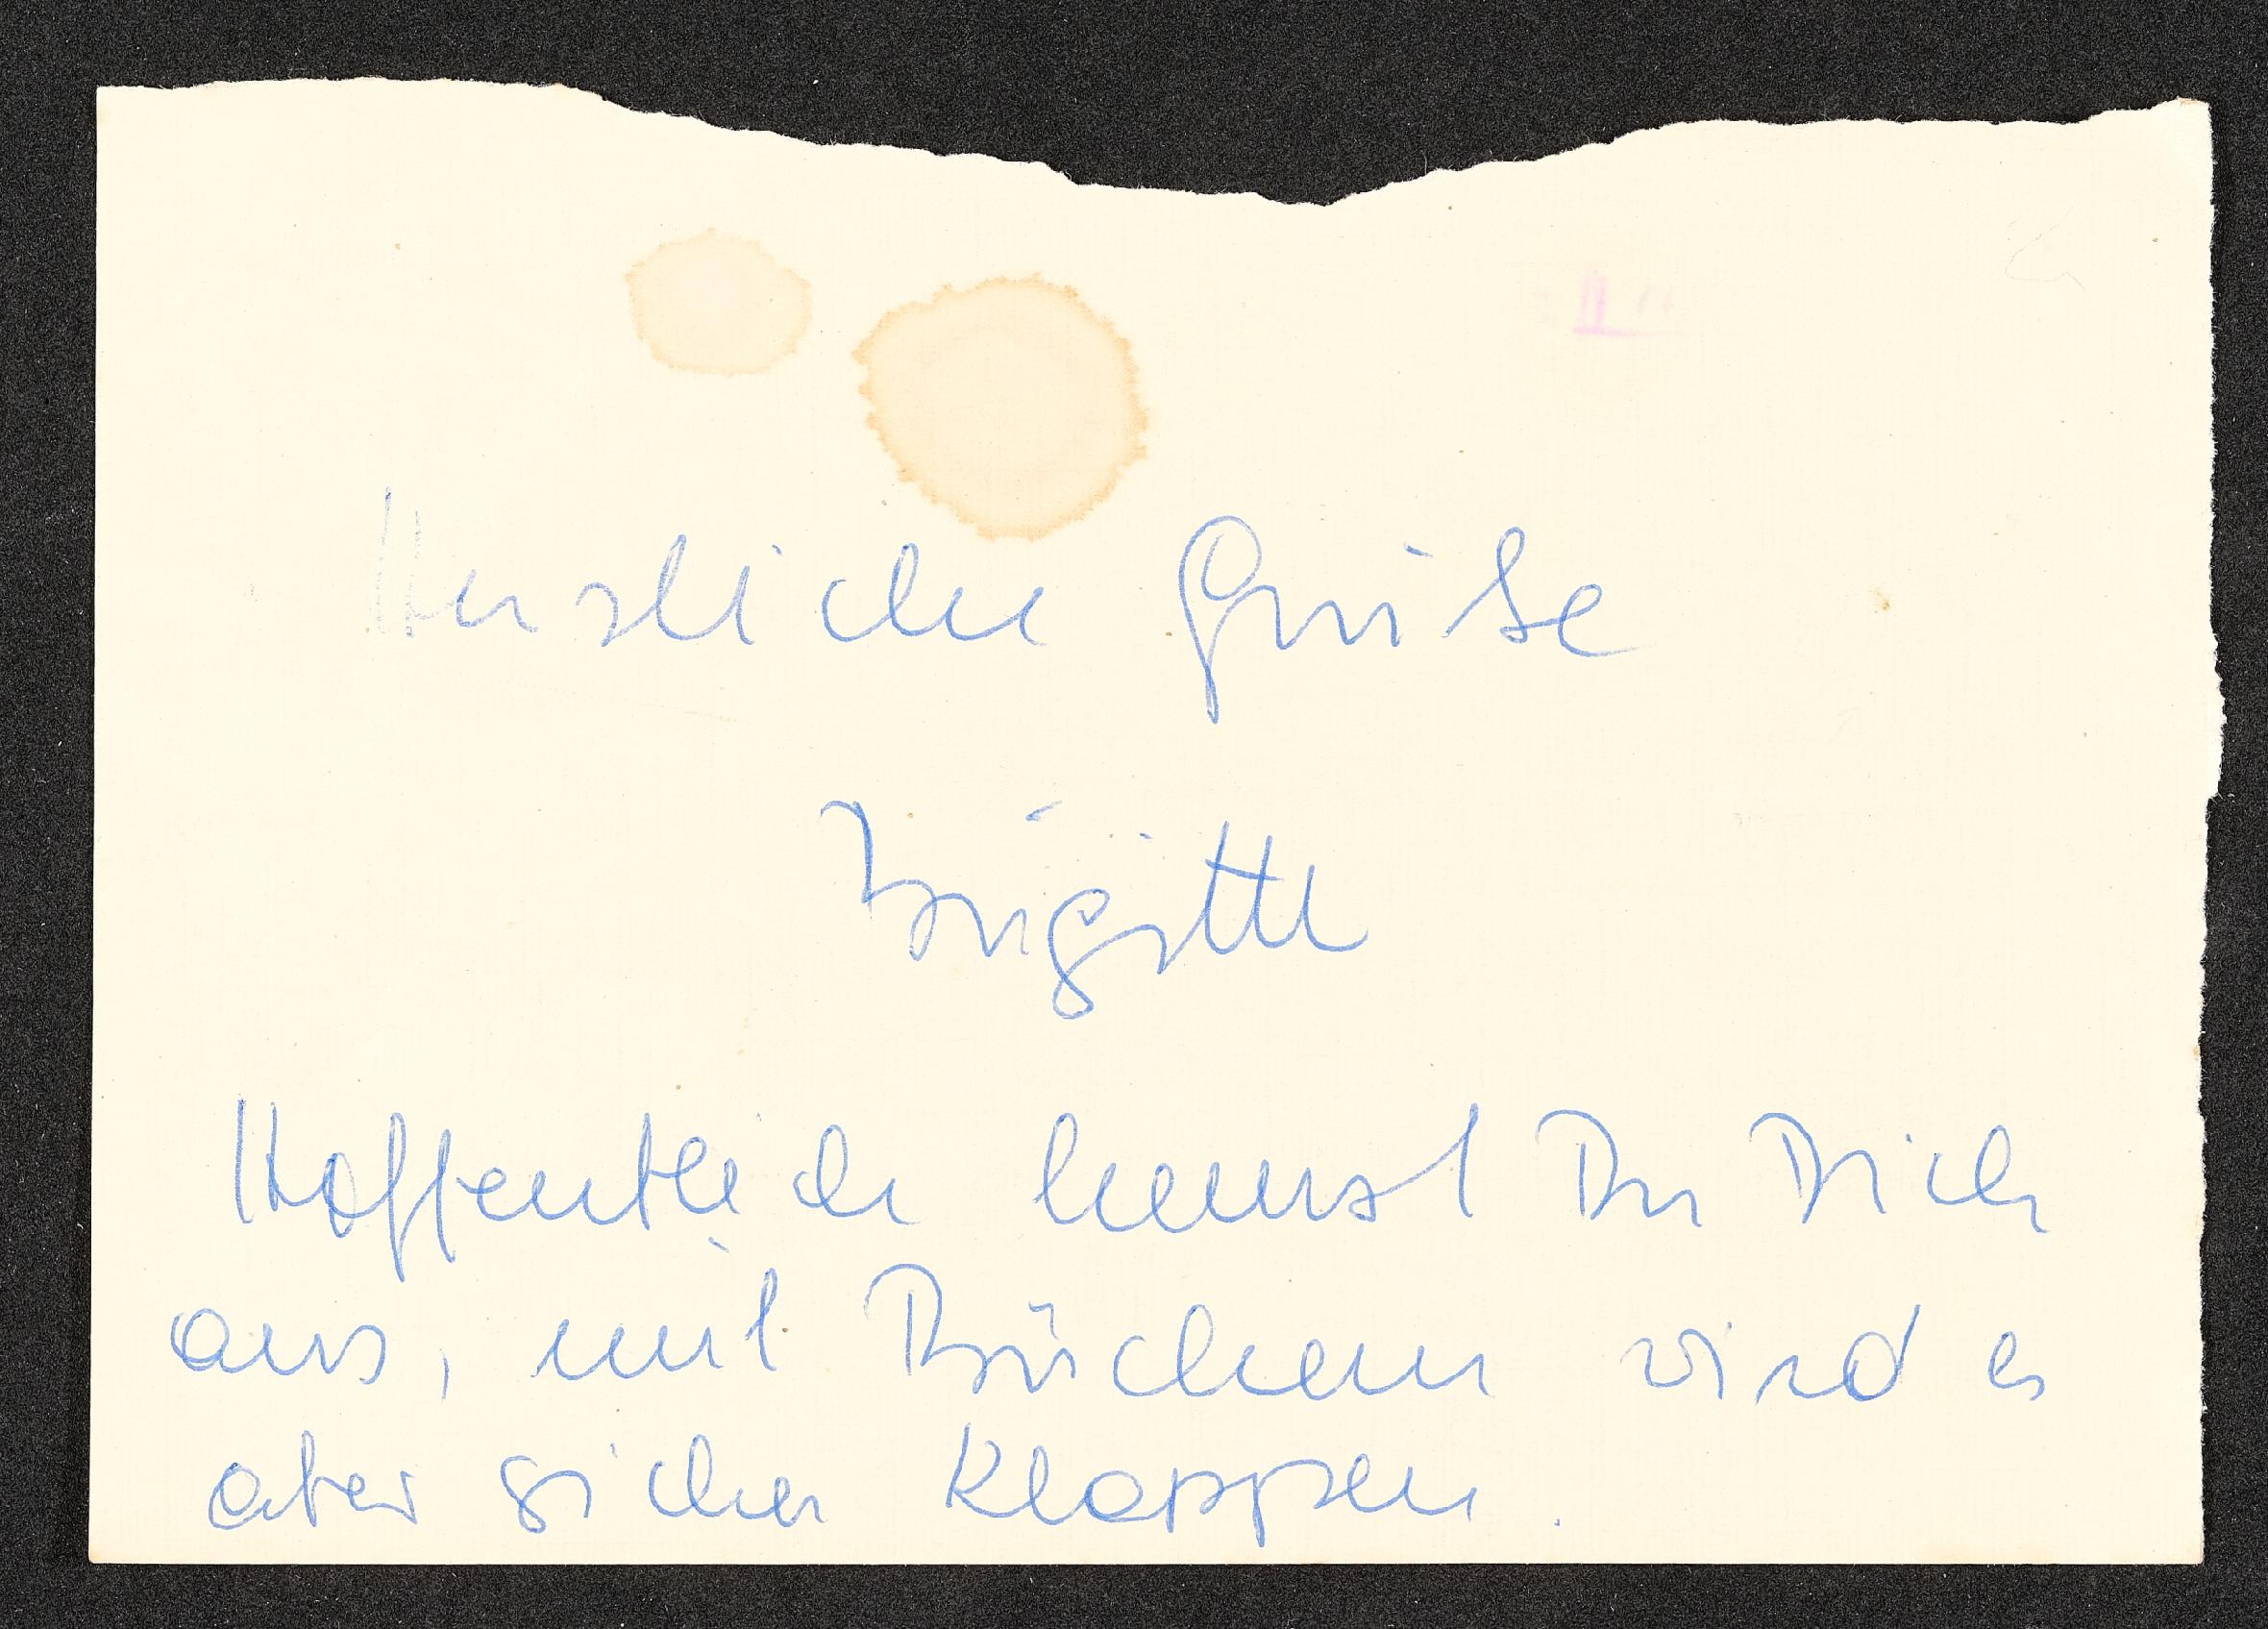 Herzliche Grüße
Brigitte
Hoffentlich kennst Du Dich
aus, mit Büchern wird es
aber sicher klappen.